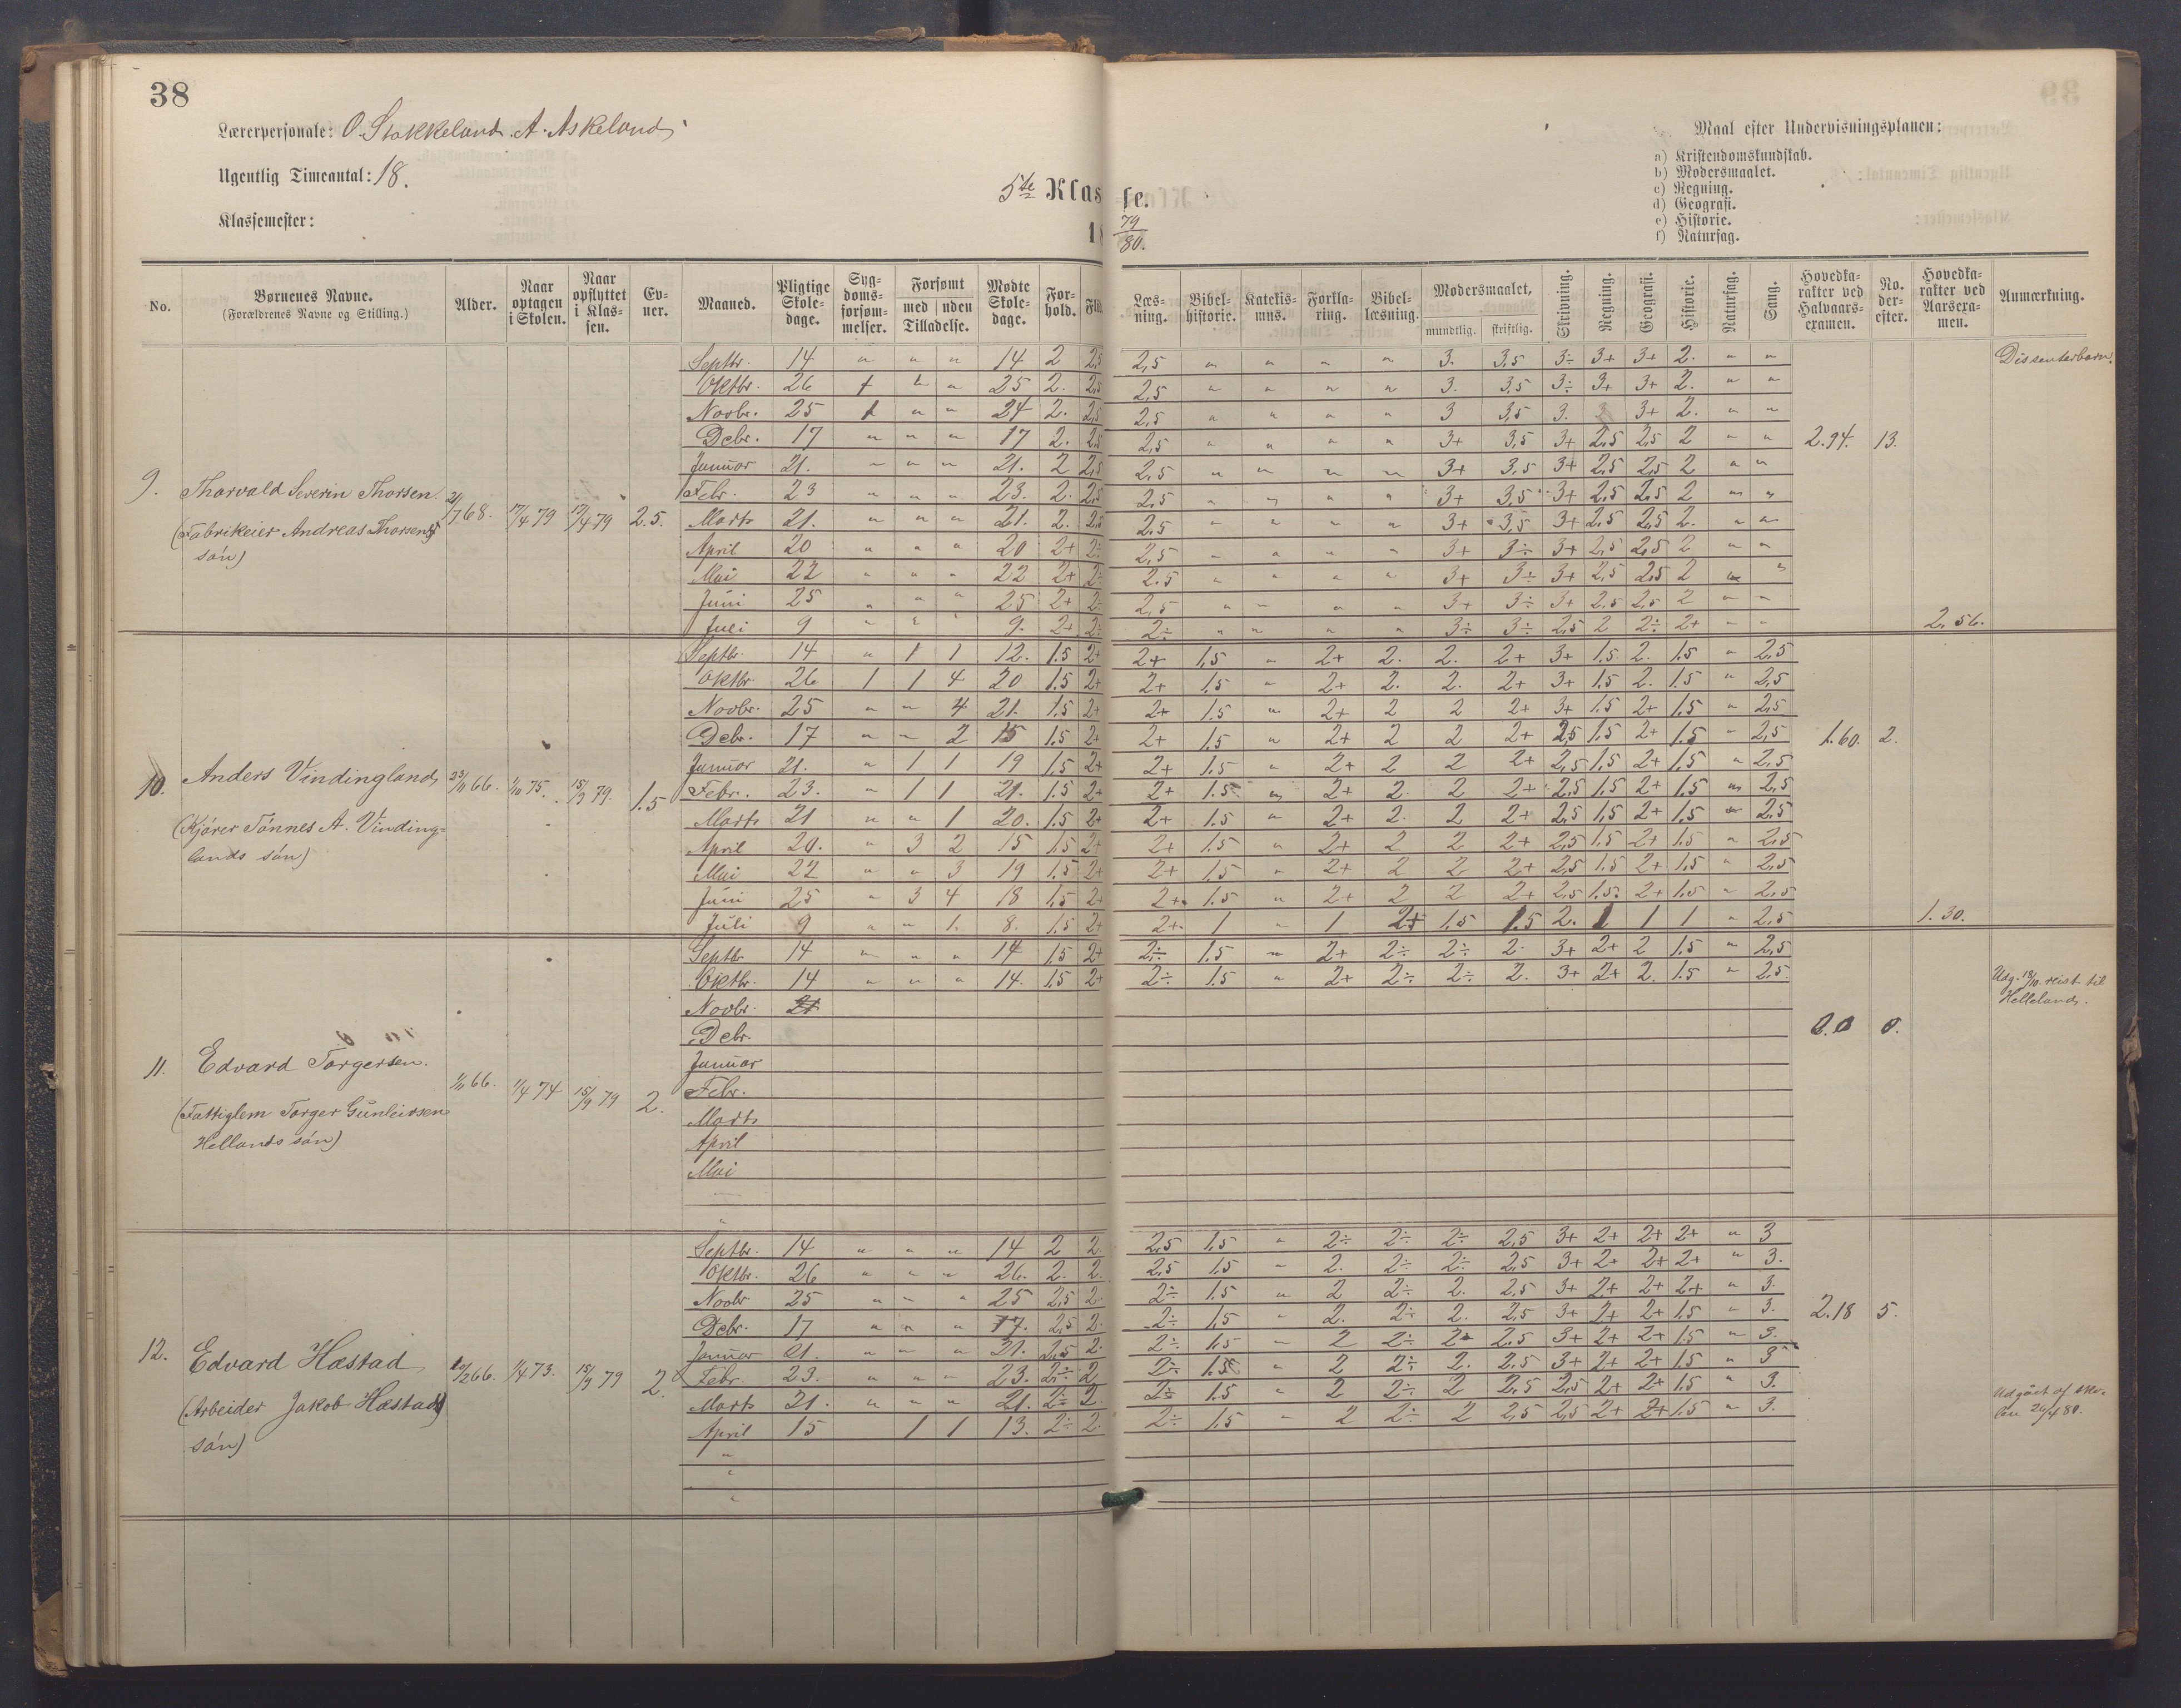 38
Lærerpersonale: O. Stokkeland. A. Askeland
Ugentlig Timeantal: 18.
Klassemester:
5te Klasse.
18 79/80.
Maal efter Undervisningsplanen:
a) Kristendomskundskab.
b) Modersmaalet.
c) Regning.
d) Geografi.
e) Historie.
f) Naturfag.
No. Børnenes Navne. (Forældrenes Navne og Stilling.) Alder. Naar optagen i Skolen. Naar opflyttet i Klassen. Evner. Maaned. Pligtige Skoledage. Sygdomsforsømmelser. Forsømt med uden Tilladelse. Mødte Skoledage. Forhold. Læsning. Bibelhistorie. Katekismus. Forklaring. Bibellæsning. Modersmaalet, mundtlig. skriftlig. Skrivning. Regning. Geografi. Historie. Naturfag. Sang. Hovedkarakter ved Halvaarsexamen. No. derefter. Hovedkarakter ved Aarsexamen. Anmærkning.
9. Thorvald Severin Thorsen. (Fabrikeier Andreas Thorsens són) 21/7 68. 17/4 79 17/4 79 2.5.
Septbr. 14 " " " 14 2 2,5 2,5 " " " " 3. 3,5 3÷ 3+ 3+ 2. " " Dissenterbarn.
Oktbr. 26 1 " " 25 2. 2,5 2,5 " " " " 3. 3,5 3÷ 3+ 3+ 2. " "
Novbr. 25 1 " " 24 2. 2,5 2,5 " " " " 3 3,5 3. 3 3+ 2. " "
Debr. 17 " " " 17 2. 2,5 2,5 " " " " 3+ 3,5 3+ 2,5 2,5 2 " " 2.94. 13.
Januar 21. " " " 21. 2 2,5 2,5 " " " " 3+ 3,5 3+ 2,5 2,5 2 " "
Febr. 23 " " " 23. 2. 2,5 2,5 " " " " 3+ 3,5 3+ 2,5 2,5 2 " "
Marts 21. " " " 21. 2. 2,5 2,5 " " " " 3+ 3,5 3+ 2,5 2,5 2. " "
April 20 " " " 20 2+ 2÷ 2,5 " " " " 3+ 3÷ 3+ 2,5 2,5 2 " "
Mai 22 " " " 22 2+ 2÷ 2.5 " " " " 3+ 3÷ 3+ 2,5 2,5 2 " "
Juni 25 " " " 25 2+ 2÷ 2,5 " " " " 3+ 3÷ 3+ 2,5 2,5 2 " "
Juli 9 " " " 9. 2+ 2÷ 2÷ " " " " 3÷ 3÷ 2,5 2 2÷ 2+ " " 2.56.
10. Anders Vindingland, (Kjórer Tónnes A. Vindinglands són) 23/11 66. 1/10 75. 15/9 79. 1.5
Septbr. 14 " 1 1 12. 1.5 2+ 2+ 1,5 " 2+ 2. 2. 2+ 3+ 1.5 2. 1.5 " 2,5
Oktbr 26 1 1 4 20 1.5 2+ 2+ 1.5 " 2+ 2. 2. 2+ 3+ 1.5 2. 1.5 " 2,5
Novbr. 25 " " 4 21. 1.5 2+ 2+ 1.5 " 2+ 2 2 2+ 3+ 1.5 2+ 1.5 " 2,5
Debr. 17 " " 2 15 1.5 2+ 2+ 1.5 " 2+ 2 2 2+ 2,5 1.5 2+ 1.5 " 2,5 1.60. 2.
Januar 21. " 1 1 19 1.5 2+ 2+ 1.5 " 2+ 2 2 2+ 2,5 1,5 2+ 1,5 " 2,5
Febr. 23. " 1 1 21. 1.5 2+ 2+ 1.5 " 2+ 2. 2 2+ 2,5 1.5 2+ 1,5 " 2,5
Marts 21 " " 1 20. 1.5 2+ 2+ 1.5 " 2+ 2. 2 2+ 2,5 1,5 2+ 1,5 " 2,5
April 20. " 3 2 15 1.5 2+ 2+ 1.5 " 2+ 2 2 2+ 2,5 1.5 2+ 1.5 " 2,5
Mai 22 " " 3 19 1.5 2+ 2+ 1.5 " 2+ 2 2 2+ 2,5 1.5 2+ 1,5 " 2,5
Juni 25 " 3 4 18 1,5 2+ 2+ 1.5 " 2+ 2 2 2+ 2,5 1.5 2+ 1.5 " 2,5
Juli 9 " " 1. 8. 1.5 2+ 2+ 1 " 1 2+ 1.5 1.5 2. 1 1 1 " 2.5 1.30.
11. Edvard Torgersen. (Fattiglem Torger Gunleivsen Hellands són) 1/10 66. 1/4 74 15/9 79 2.
Septbr 14 " " " 14 1.5 2+ 2÷ 1.5 " 2+ 2÷ 2÷ 2. 3+ 2+ 2 1.5 " 2,5
Oktbr. 14 " " " 14. 1.5 2+ 2÷ 1.5 " 2+ 2÷ 2÷ 2. 3+ 2+ 2. 1.5 " 2.5 Udg. 18/10 reist til Helleland.
Novbr. 21
Debr. 0.0 0.
Januar
Febr.
Marts
April
Mai
12. Edvard Hæstad, (Arbeider Jakob Hæstads són) 1/4 73. 15/9 79 2.
Septbr. 14 " " " 14 2 2. 2,5 1.5 " 2÷ 2÷ 2÷ 2,5 3+ 2+ 2+ 2+ " 3
Oktbr. 26 " " " 26. 2. 2. 2,5 1.5 " 2. 2÷ 2÷ 2,5 3+ 2+ 2+ 2+ " 3.
Novbr 25 " " " 25 2,5 2. 2÷ 1.5 " 2 2÷ 2. 2,5 3+ 2+ 2+ 2+ " 3.
Debr. 17 " " " 17. 2,5 2. 2÷ 1,5 " 2. 2÷ 2. 2,5 3+ 2+ 2+ 1.5 " 3. 2.18 5.
Januar 21. " " " 21. 2,5 2. 2÷ 1.5 " 2 2÷ 2. 2,5 3+ 2+ 2+ 1.5 " 3.
Febr. 23. " " " 23. 2÷ 2 2÷ 1.5 " 2 2÷ 2. 2.5 3+ 2+ 2+ 1.5 " 3
Marts 21. " " " 21. 2÷ 2. 2÷ 1.5 " 2 2÷ 2 2,5 2,5 2+ 2+ 1.5 " 3.
April 15 1 1 13. 2÷ 2. 2÷ 1.5 " 2 2÷ 2 2,5 2,5 2+ 2+ 1.5 " 3. Udgået af Skolen 80.